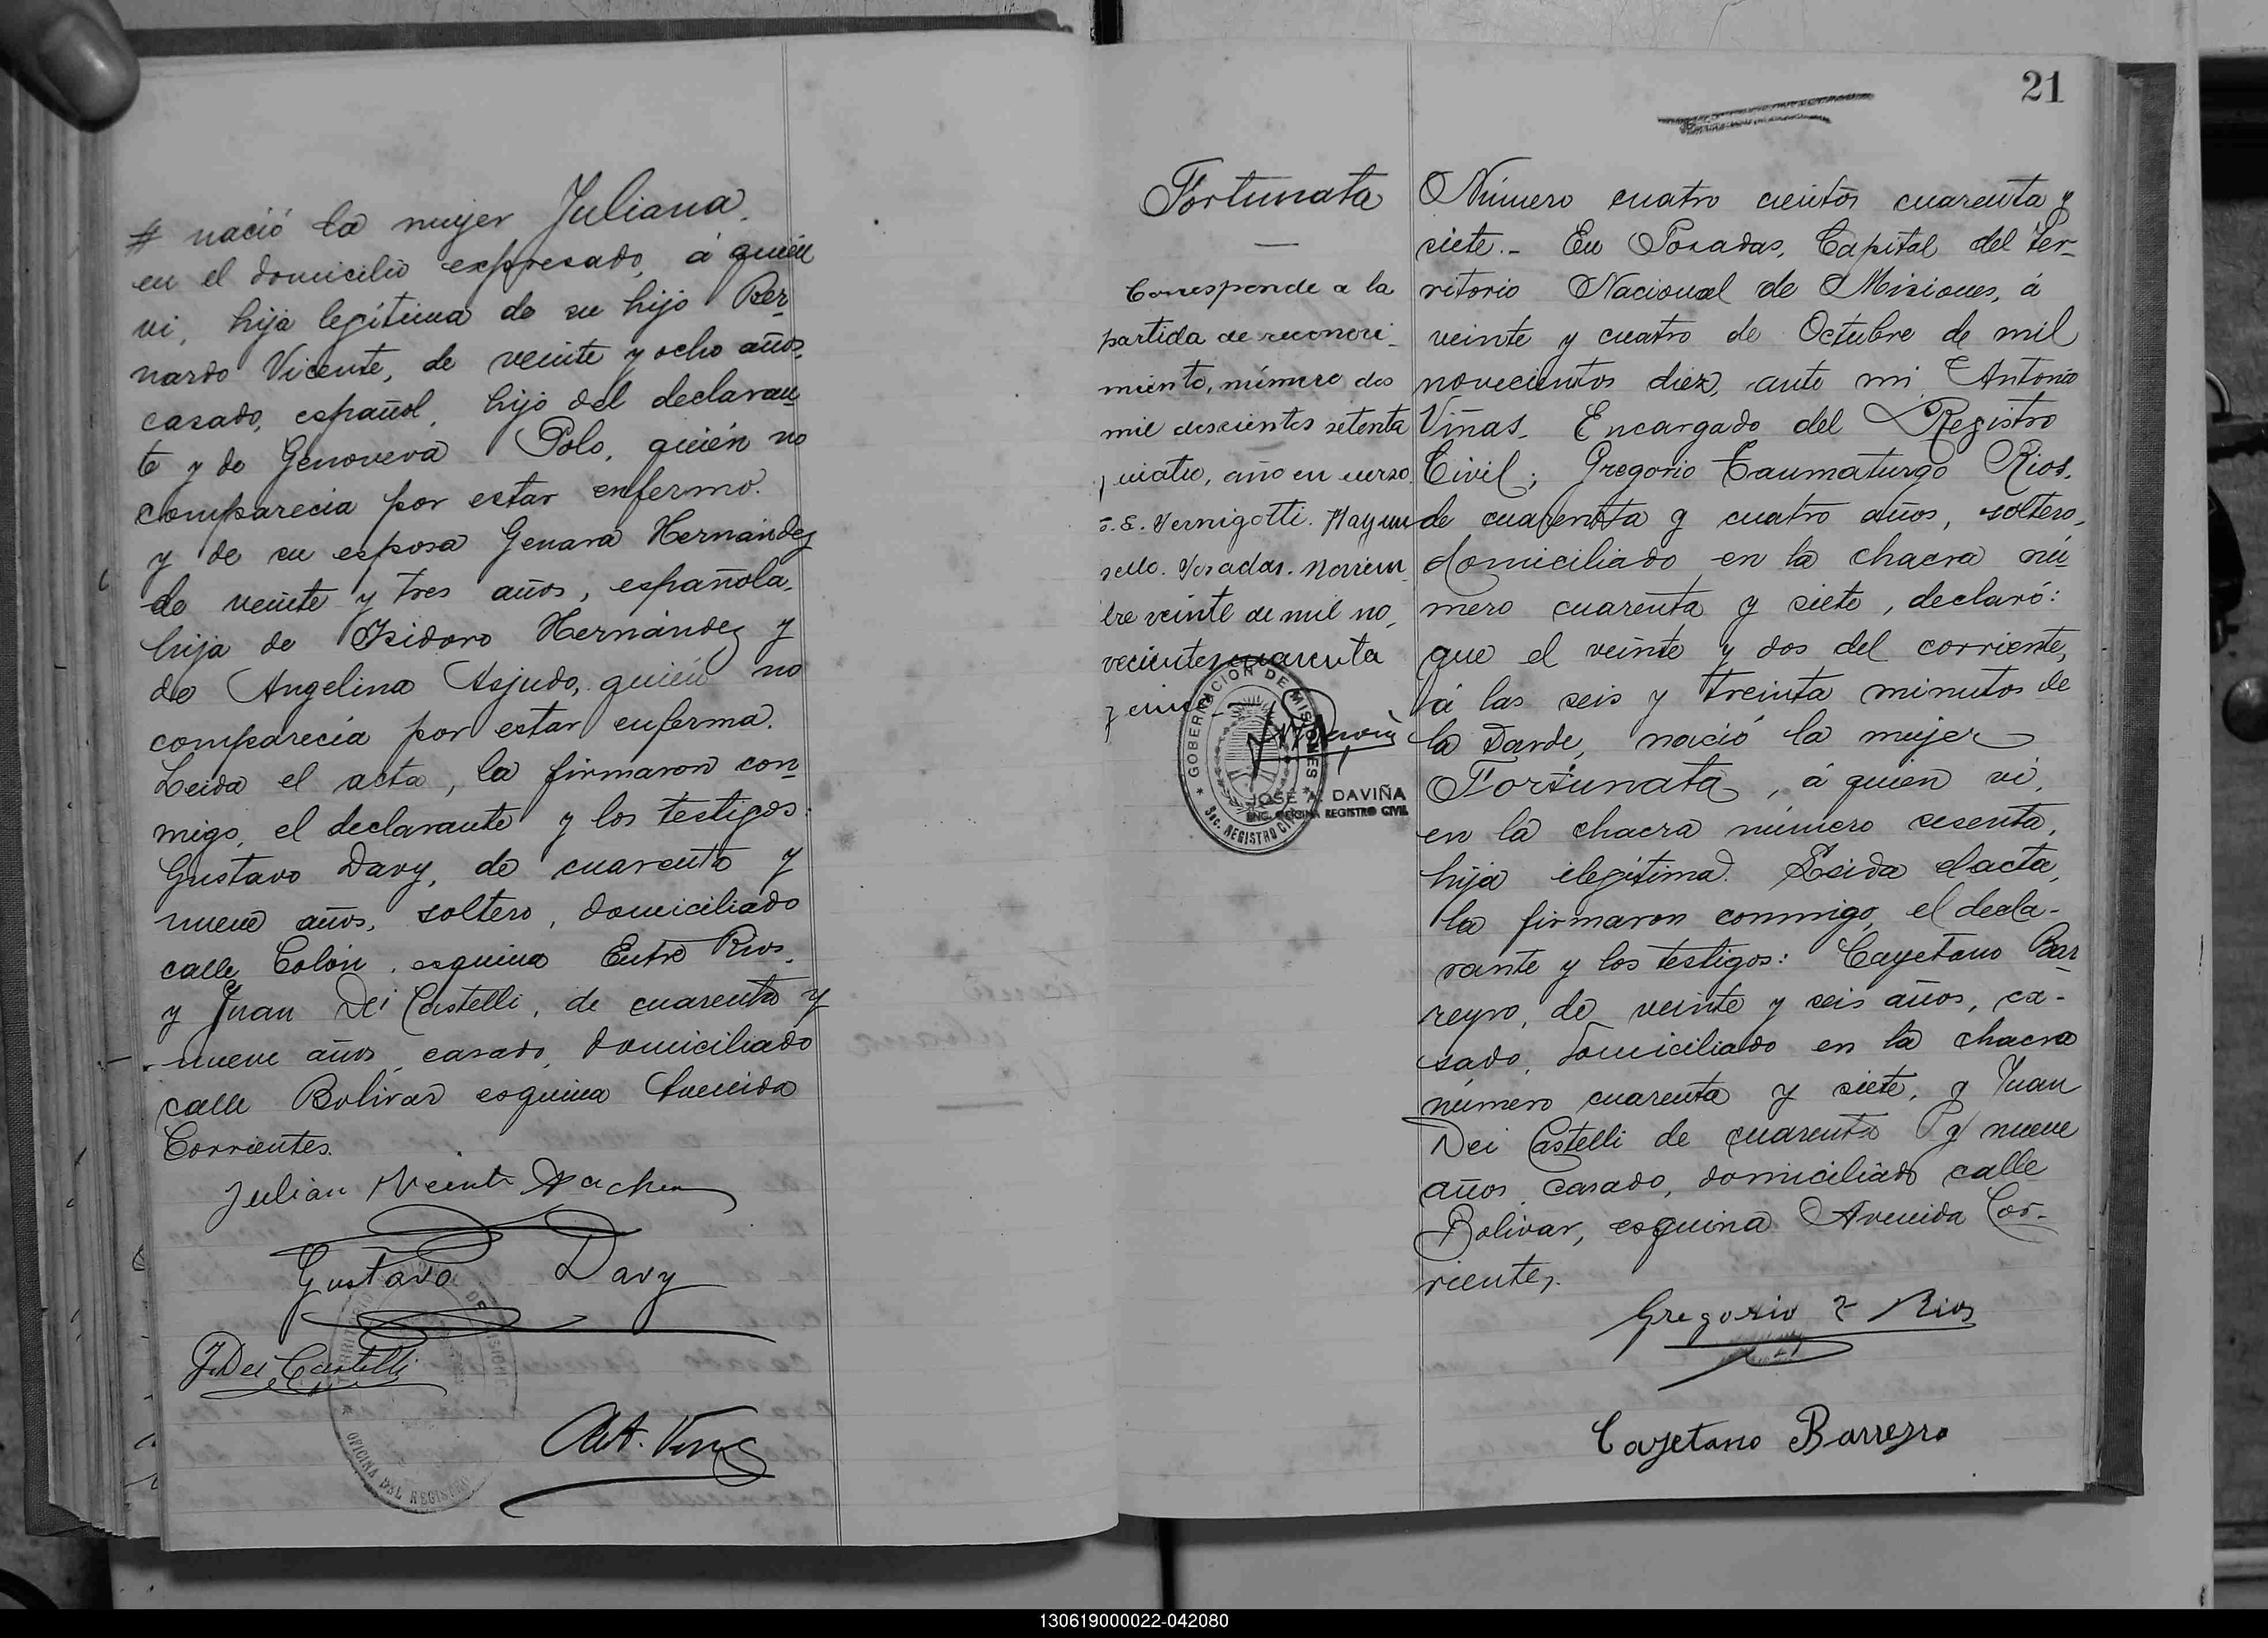 # nació la mujer Juliana,
en el domicilio expresado, á quién
vi, hija legítima de su hijo Ber-
nardo Vicente, de veinte y ocho años,
casado, español, hijo del declaran-
te y de Genoveva Polo, quién no
comparecia por estar enfermo.
y de su esposa Genara Hernández
de veinte y tres años, española,
hija de Isidoro Hernández y
de Angelina Asjudo, quién no
comparecía por estar enferma.
Leida el acta, la firmaron con-
migo, el declarante y los testigos:
Gustavo Davy, de cuarenta y
nueve años, soltero, domiciliado
calle Colón, esquina Entre Rios,
y Juan Dei Castelli, de cuarenta y
nueve años, casado, domiciliado
calle Bolívar esquina Avenida
Corrientes.
Julian Vicente
Gustavo Davy
J. Dei Castelli
OFICINA DEL REGISTRO
21
Fortunata
Corresponde a la
partida de reconoci-
miento, número dos
mil doscientos setenta
y cuatro, año en curso.
Vernigotti. Hay un
sello. Posadas. Noviem-
bre veinte de mil no-
vecientos cuarenta
y
GOBERNACIÓN DE MISIONES
Sec. REGISTRO CIVIL
JOSÉ A. DAVIÑA
ENC. OFICINA REGISTRO CIVIL
Número cuatro cientos cuarenta y
siete.- En Posadas, Capital del Ter-
ritorio Nacional de Misiones, á
veinte y cuatro de Octubre de mil
novecientos diez, ante mi, Antonio
Viñas, Encargado del Registro
Civil; Gregorio Taumaturgo Rios,
de cuarenta y cuatro años, soltero,
domiciliado en la chacra nú-
mero cuarenta y siete, declaró:
que el veinte y dos del corriente,
á las seis y treinta minutos de
la tarde, nació la mujer
Fortunata, á quien vi,
en la chacra número sesenta,
hija ilegítima. Leida el acta,
la firmaron conmigo, el decla-
rante y los testigos: Cayetano Bar-
reyro, de veinte y seis años, ca-
sado, domiciliado en la chacra
número cuarenta y siete, y Juan
Dei Castelli de cuarenta y nueve
años, casado, domiciliado calle
Bolivar, esquina Avenida Cor-
rientes.
Gregorio T Rios
Cayetano Barreyro
130619000022-042080